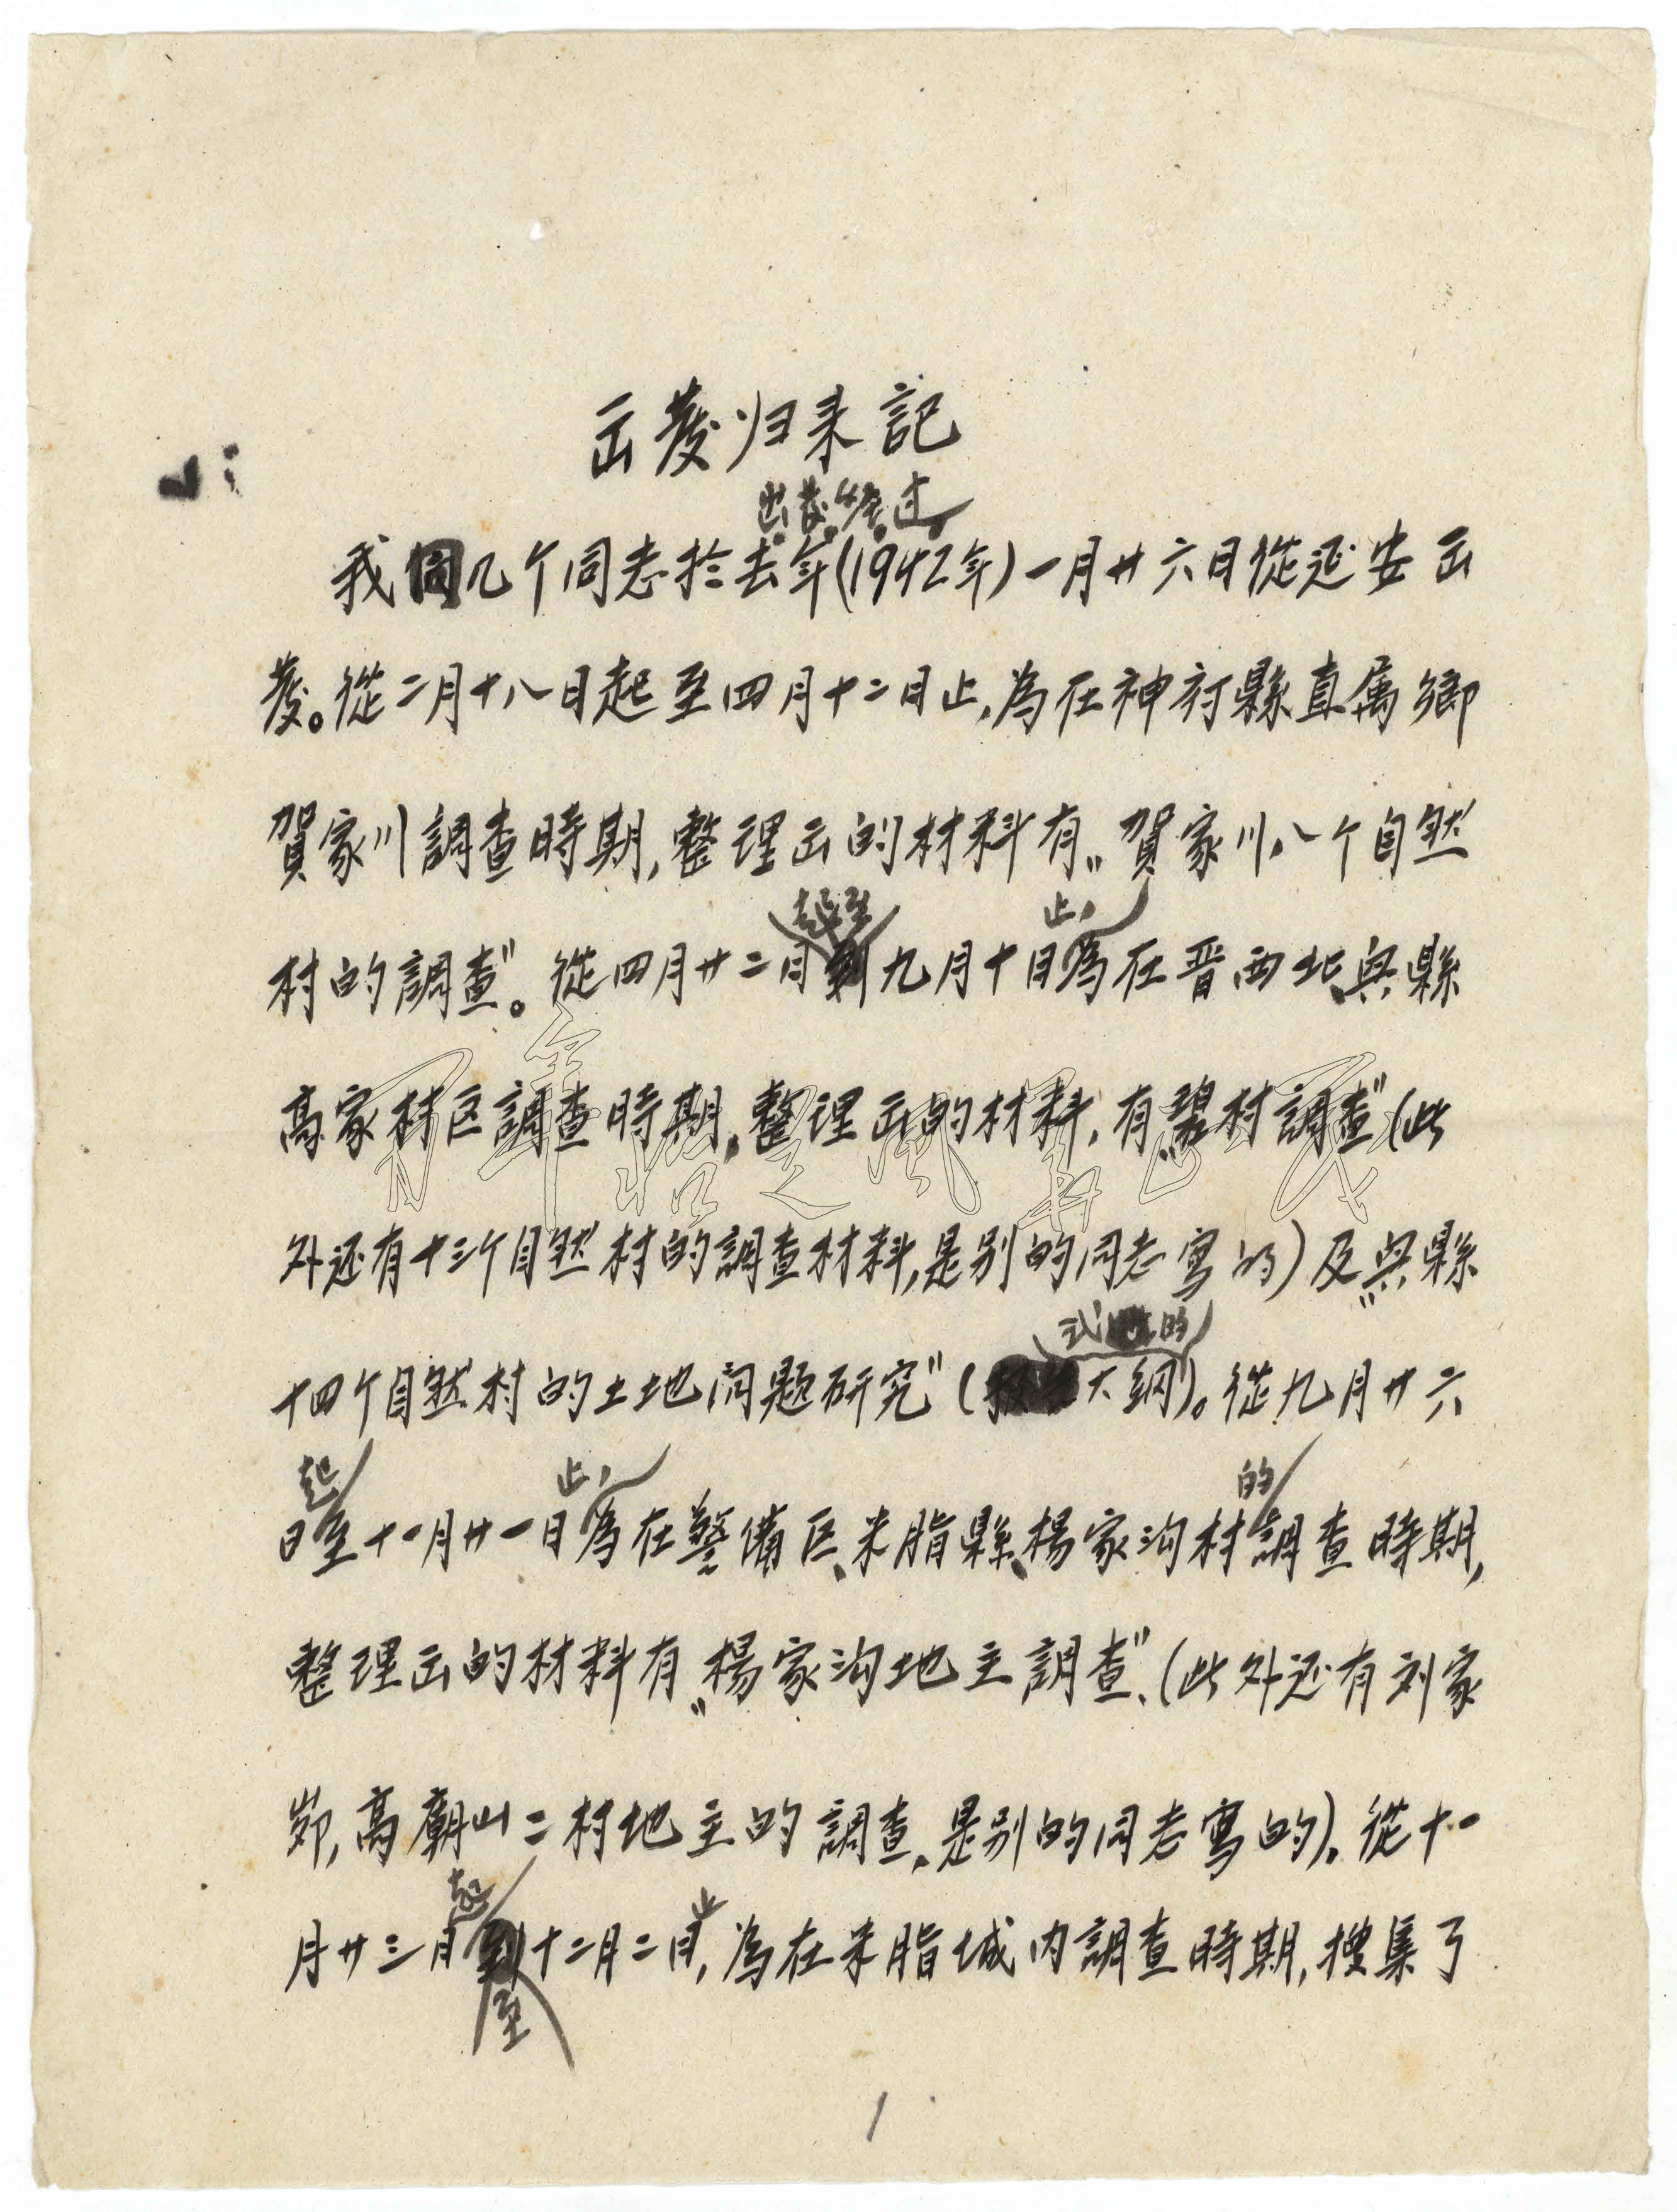 出發归来記
出發经过
我同几个同志於去年(1942年)一月廿六日從延安出
發。從二月十八日起至四月十二日止,為在神府縣直属鄉
賀家川調查時期,整理出的材料有"賀家川八个自然
起至 止,
村的調查"。從四月廿二日到九月十日為在晋西北、兴縣
高家村区調查時期,整理出的材料,有"碧村調查"(此
外还有十三个自然村的調查材料,是别的同志寫的)及"兴縣
式的
十四个自然村的土地问题研究"(大纲)。從九月廿六
起 止, 的
日至十一月廿一日為在警備区、米脂縣、楊家沟村調查時期,
整理出的材料有"楊家沟地主調查",(此外还有刘家
峁,高廟山二村地主的調查,是别的同志寫的)。從十一
起 止
月廿三日到十二月二日,為在米脂城内調查時期,搜集了
至
1